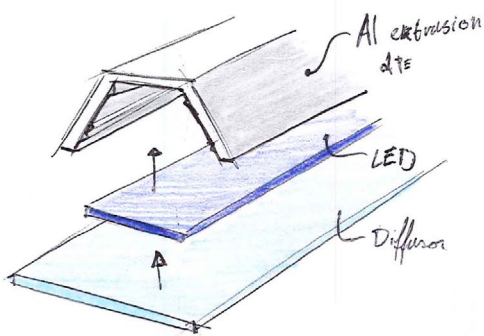 Al extrusion
LED
Diffusor